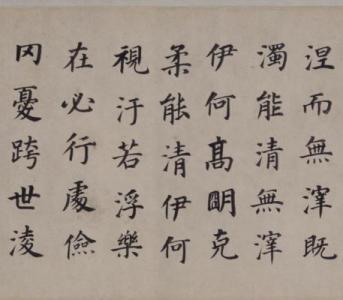 涅而無滓既
濁能清無滓
伊何髙朙克
柔能清伊何
視汙若浮樂
在必行處儉
罔憂跨世淩